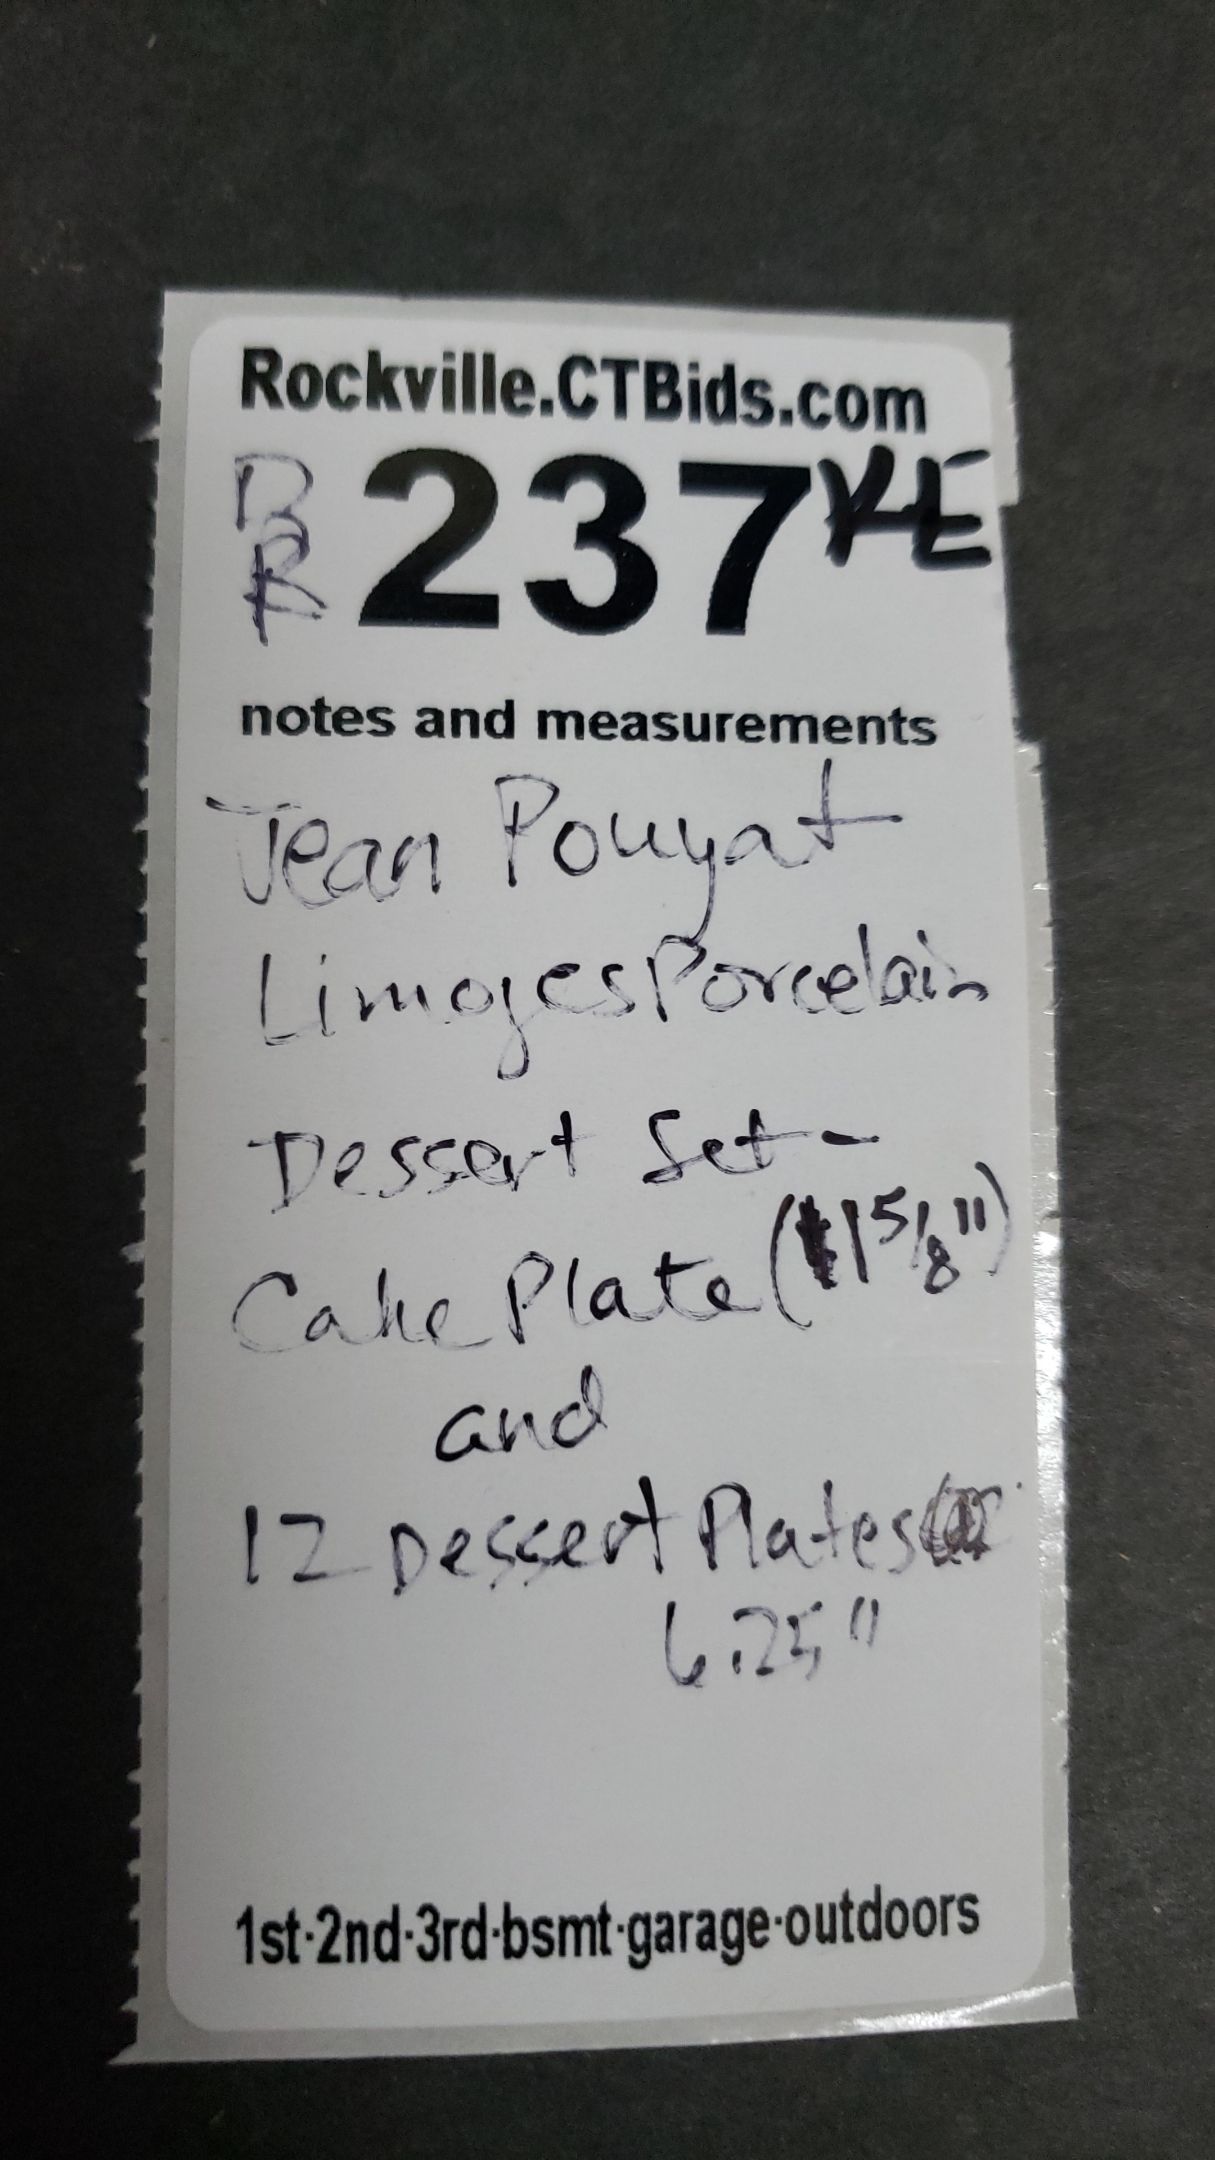 Rockville.CTBids.com
BR 237 KE
notes and measurements
Jean Pouyat
Limoges Porcelain
Dessert Set -
Cake Plate (11 5/8")
and
12 Dessert Plates
6.25"
1st·2nd·3rd·bsmt·garage·outdoors